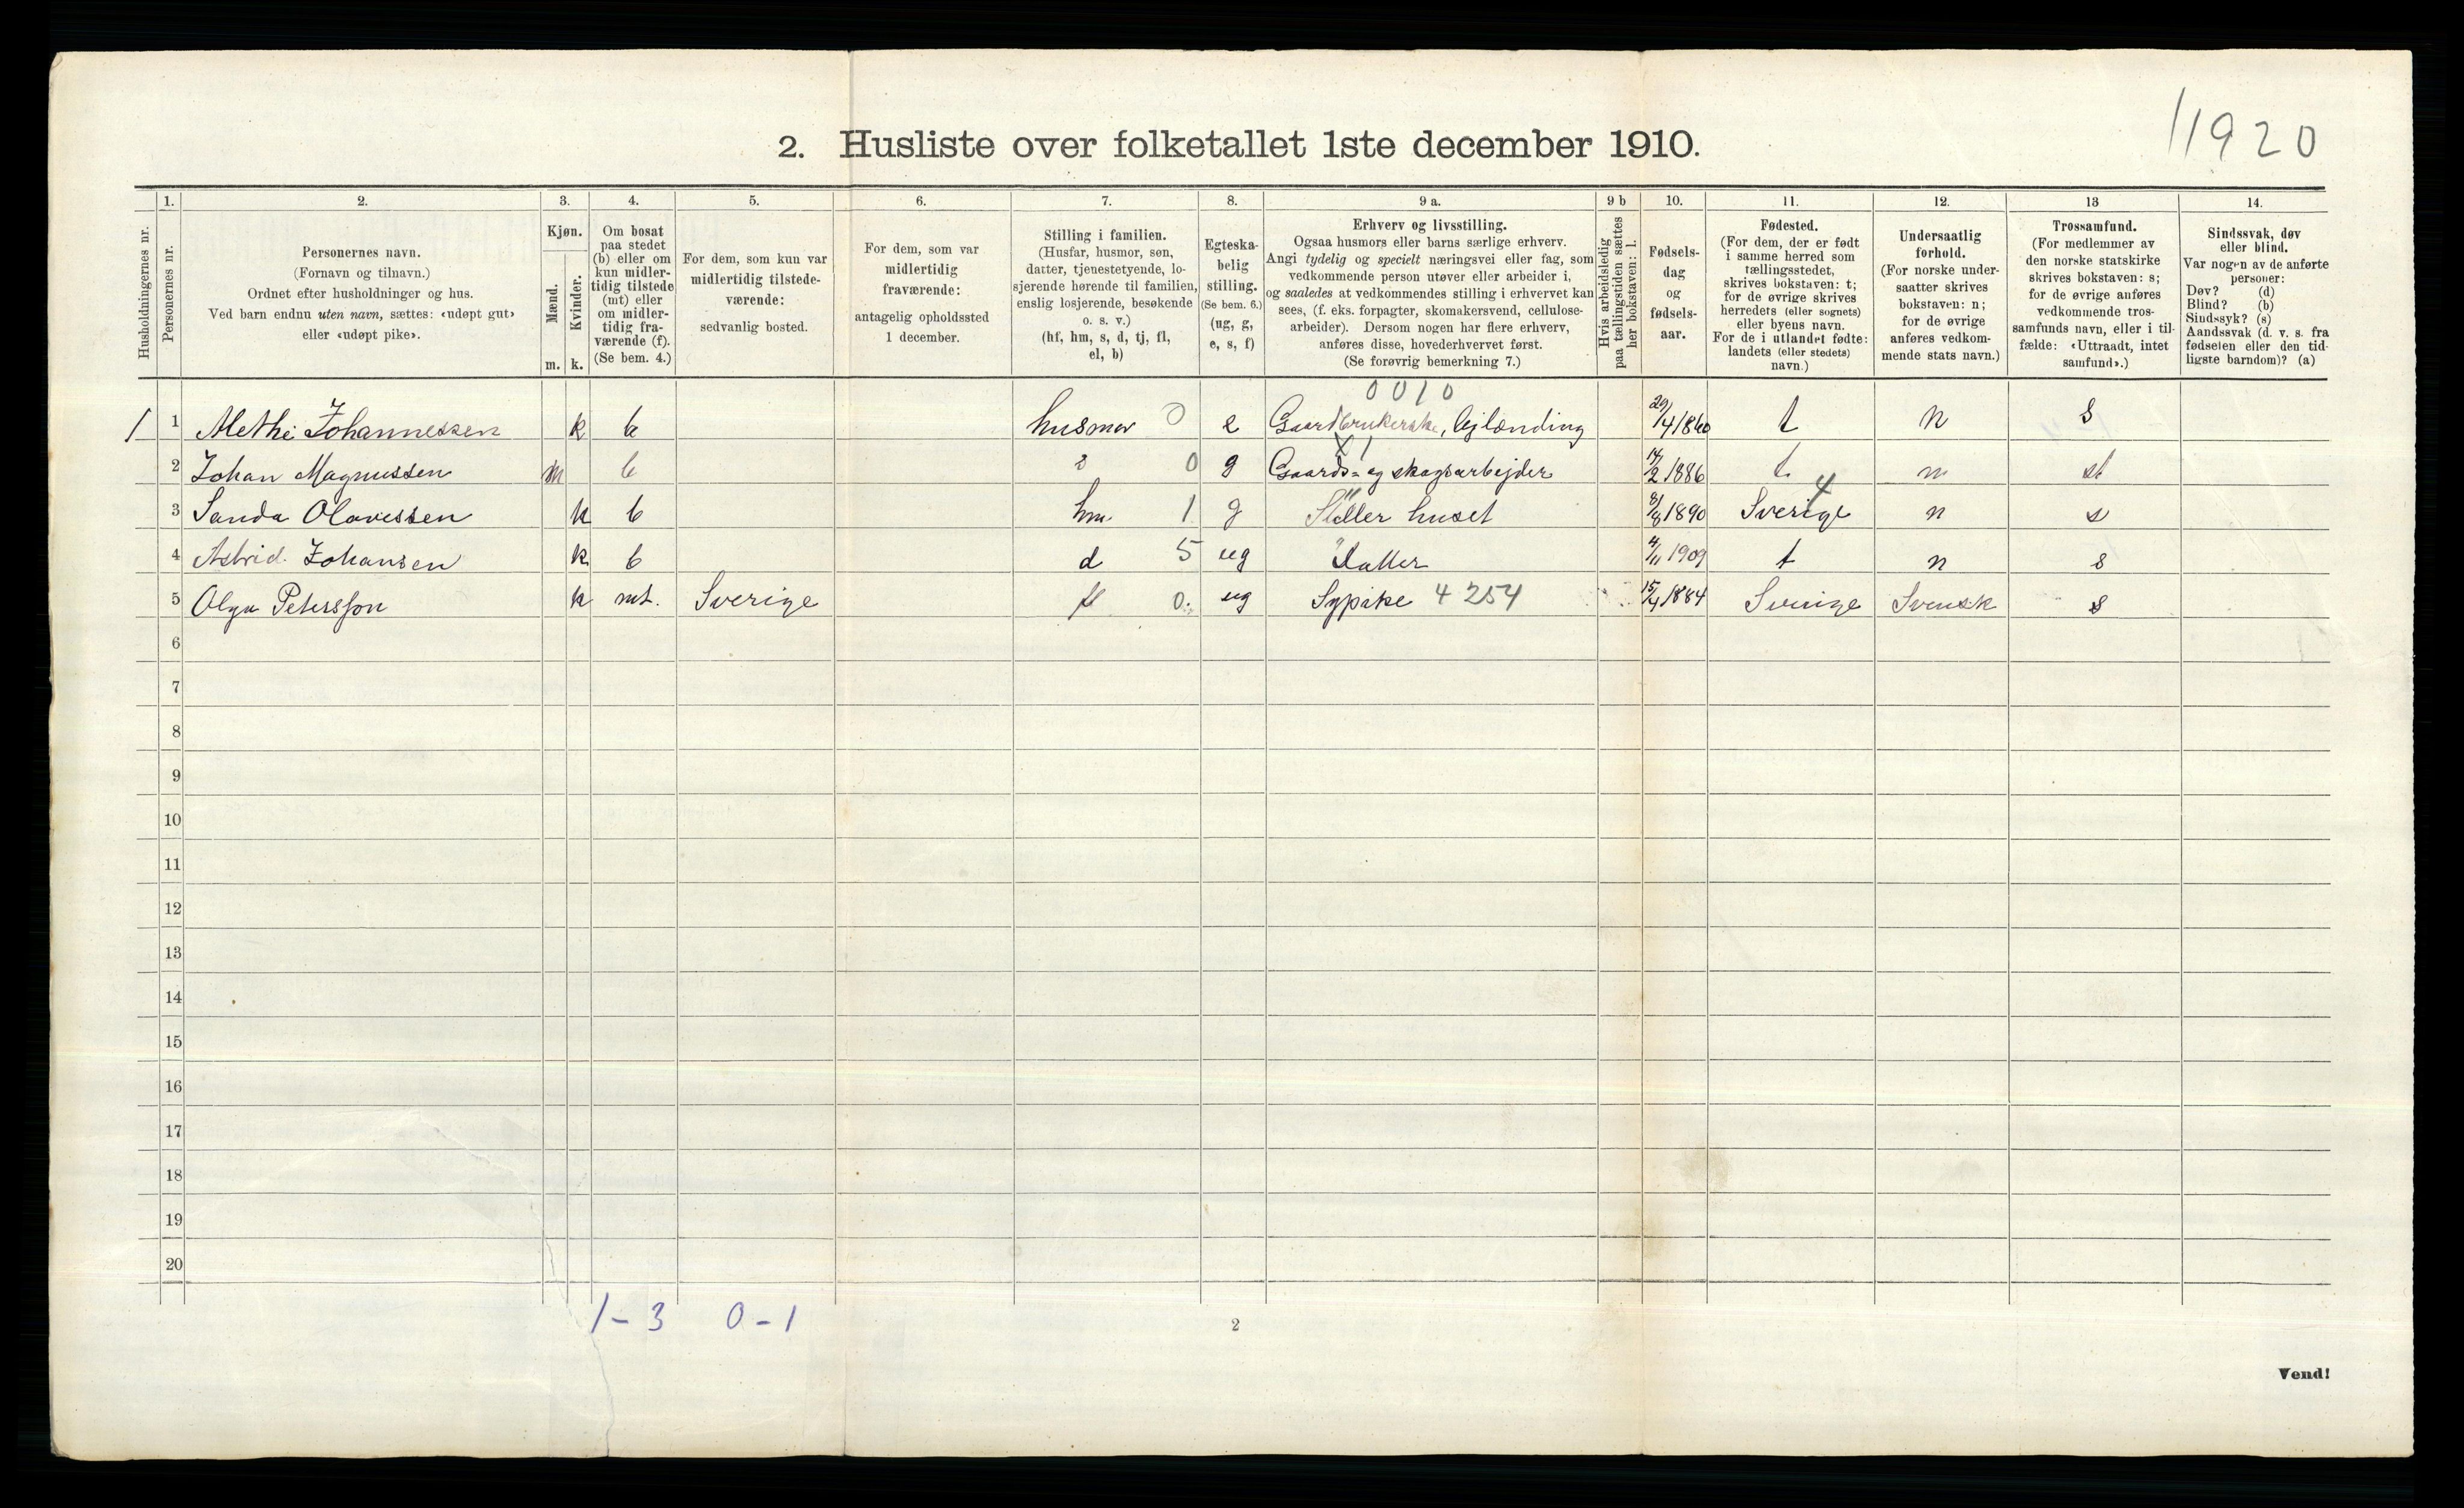 11920
2. Husliste over folketallet 1ste december 1910.
1. 2. 3. 4. 5. 6. 7. 8. 9 a. 9 b 10. 11. 12. 13 14.
Husholdningernes nr.
Personernes nr.
Personernes navn.
(Fornavn og tilnavn.)
Ordnet efter husholdninger og hus.
Ved barn endnu uten navn, sættes: «udøpt gut»
eller «udøpt pike».
Kjøn.
Mænd.
Kvinder.
m. k.
Om bosat
paa stedet
(b) eller om
kun midler-
tidig tilstede
(mt) eller
om midler-
tidig fra-
værende (f).
(Se bem. 4.)
For dem, som kun var
midlertidig tilstede-
værende:
sedvanlig bosted.
For dem, som var
midlertidig
fraværende:
antagelig opholdssted
1 december.
Stilling i familien.
(Husfar, husmor, søn,
datter, tjenestetyende, lo-
sjerende hørende til familien,
enslig losjerende, besøkende
o. s. v.)
(hf, hm, s, d, tj, fl,
el, b)
Egteska-
belig
stilling.
(Se bem. 6.)
(ug, g,
e, s, f)
Erhverv og livsstilling.
Ogsaa husmors eller barns særlige erhverv.
Angi tydelig og specielt næringsvei eller fag, som
vedkommende person utøver eller arbeider i,
og saaledes at vedkommendes stilling i erhvervet kan
sees, (f. eks. forpagter, skomakersvend, cellulose-
arbeider). Dersom nogen har flere erhverv,
anføres disse, hovederhvervet først.
(Se forøvrig bemerkning 7.)
Hvis arbeidsledig
paa tællingstiden sættes
her bokstaven: l.
Fødsels-
dag
og
fødsels-
aar.
Fødested.
(For dem, der er født
i samme herred som
tællingsstedet,
skrives bokstaven: t;
for de øvrige skrives
herredets (eller sognets)
eller byens navn.
For de i utlandet fødte:
landets (eller stedets)
navn.)
Undersaatlig
forhold.
(For norske under-
saatter skrives
bokstaven: n;
for de øvrige
anføres vedkom-
mende stats navn.)
Trossamfund.
(For medlemmer av
den norske statskirke
skrives bokstaven: s;
for de øvrige anføres
vedkommende tros-
samfunds navn, eller i til-
fælde: «Uttraadt, intet
samfund».)
Sindssvak, døv
eller blind.
Var nogen av de anførte
personer:
Døv? (d)
Blind? (b)
Sindssyk? (s)
Aandssvak (d. v. s. fra
fødselen eller den tid-
ligste barndom)? (a)
0010
1 1 Methe Johannessen k b husmor 0 e Gaardbrukerske, lejlænding 29/4 1860 t n s
X 1
2 Johan Magnussen m b s 0 g Gaards- og skogsarbejder 14/2 1886 t n st
4
3 Sanda Olavessen k b hm 1 g Steller huset 8/8 1890 Sverige n s
4 Astrid Johansen k b d 5 ug Datter 4/11 1909 t n s
5 Olga Petersson k mt. Sverige fl 0. ug Sypike 4 254 15/4 1884 Sverige Svensk s
6
7
8
9
10
11
12
13
14
15
16
17
18
19
20
1 - 3 0 - 1
2
Vend!